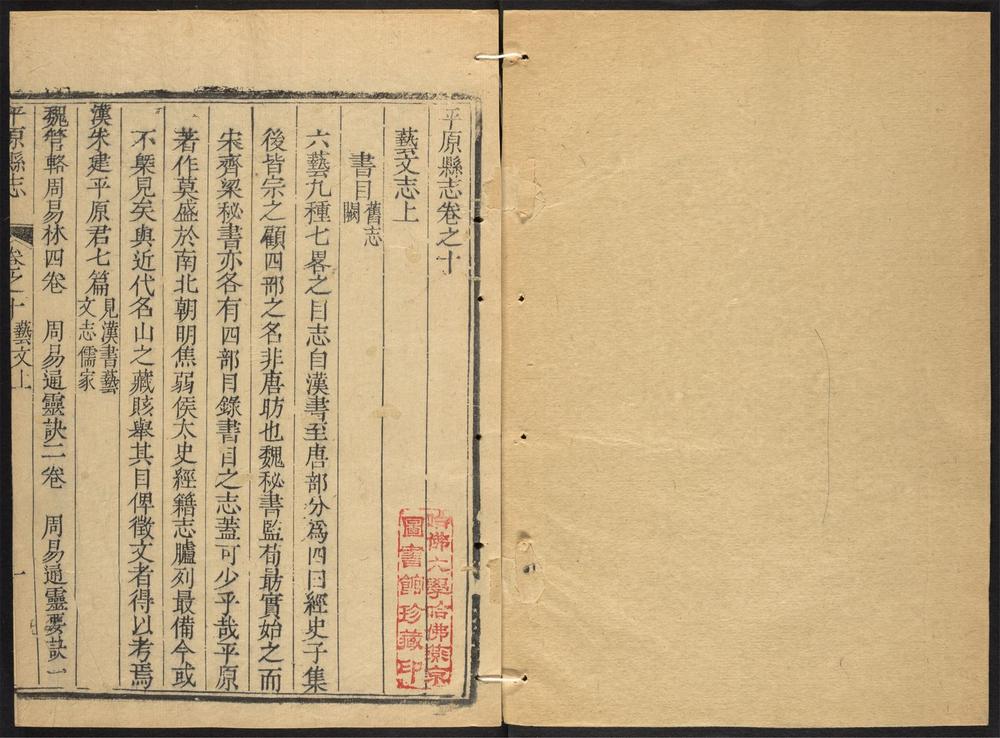 平原縣志卷之十
藝文志上
書目舊志闕
六藝九種七畧之目志自漢書至唐部分爲四曰經史子集
後皆宗之顧四部之名非唐昉也魏秘書監荀勗實始之而
宋齊梁秘書亦各有四部目錄書目之志蓋可少乎哉平原
著作莫盛於南北朝明焦弱侯太史經籍志臚列最備今或
不槩見矣與近代名山之藏賅舉其目俾徵文者得以考焉
漢朱建平原君七篇見漢書藝文志儒家
魏管輅周易林四卷 周易通靈訣二卷 周易通靈要訣一
平原縣志 卷之十 藝文上 一
哈佛大學哈佛燕京
圖書館珍藏印